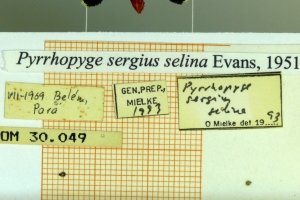 Pyrrhopyge sergius selina Evans, 1951
VII-1969 Belém,
Pará
GEN. PREP.,
MIELKE
1999
Pyrrhopyge
sergius
selina
O Mielke det 19..... 93
OM 30.049